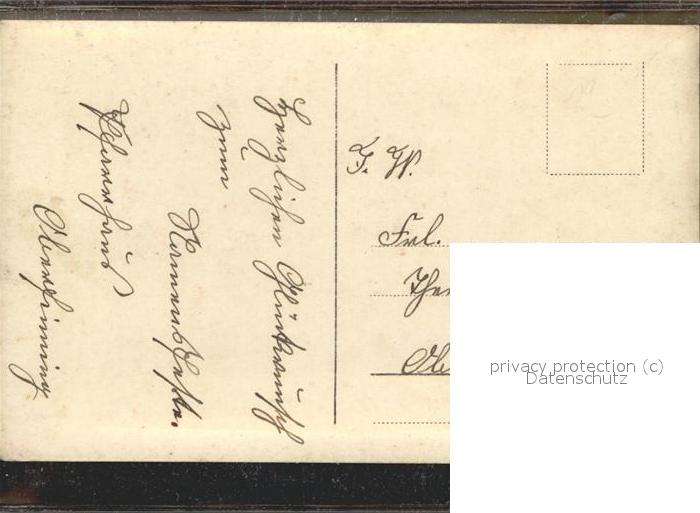 Herzlichen Glückwunsch
zum
Namensfeste.
Pfarrhaus
Oberfinning
Frl.
Ther
Ob
privacy protection (c)
Datenschutz